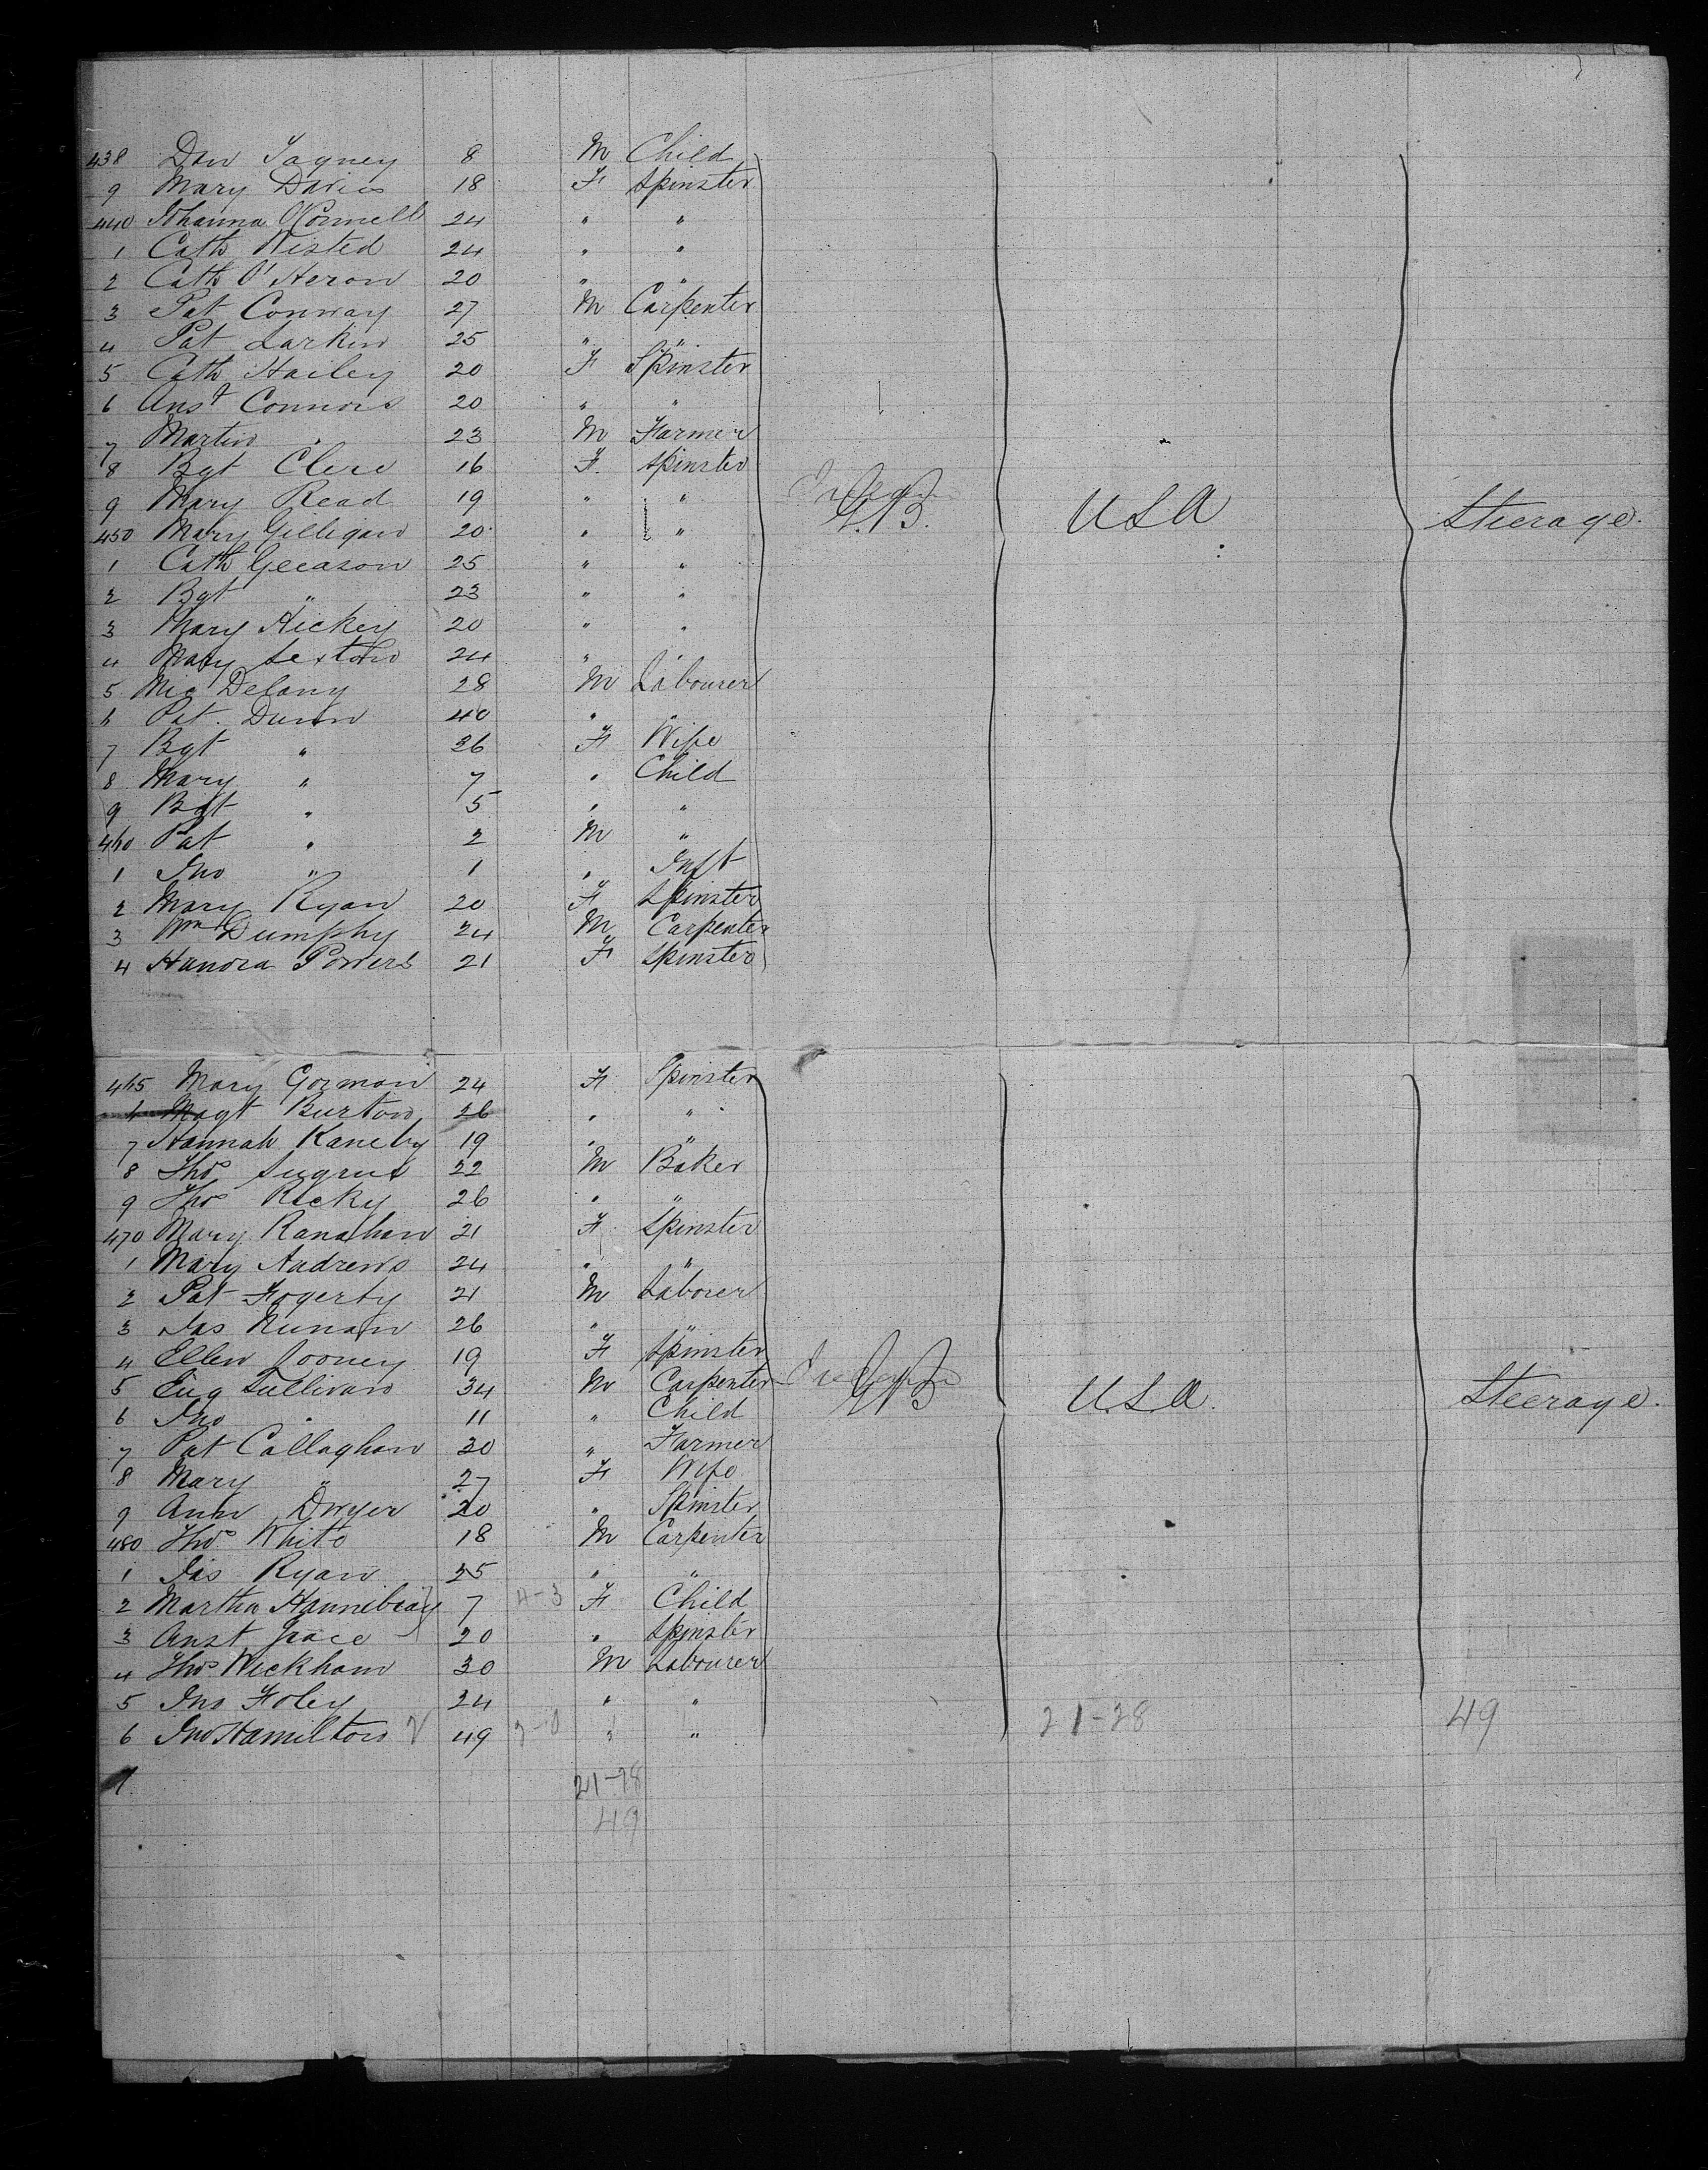 438 Dan Tagney 8 M Child
9 Mary Davies 18 F Spinster
440 Johanna O'Connell 24 " "
1 Cath Wisted 24 " "
2 Cath O'Heron 20 " "
3 Pat Conway 27 M Carpenter
4 Pat Larkin 25 " "
5 Cath Hailey 20 F Spinster
6 Anst Connors 20 " "
7 Martin " 23 M Farmer
8 Bgt Clere 16 F. Spinster
9 Mary Read 19 " " G.B. USA Steerage.
450 Mary Gilligan 20 " "
1 Cath Gleason 25 " "
2 Bgt " 23 " "
3 Mary Hickey 20 " "
4 Mary Sexton 24 " "
5 Mic Delany 28 M Labourer
6 Pat. Dunn 40 " "
7 Bgt " 36 F Wife
8 Mary " 7 " Child
9 Bgt " 5 " "
460 Pat " 2 M "
1 Jno " 1 " Inft
2 Mary Ryan 20 F Spinster
3 Wm Dumphy 24 M Carpenter
4 Hanora Powers 21 F Spinster
465 Mary Gorman 24 F Spinster
6 Magt Burton 26 " "
7 Hannah 19 " "
8 Thos Sugrue 22 M Baker
9 Thos 26 " "
470 Mary Ranahan 21 F. Spinster
1 Mary Andrews 24 " "
2 Pat Fogerty 21 M Laborer
3 Jas Nunan 26 " "
4 Ellen Looney 19 F Spinster
5 Eug Sullivan 34 M Carpenter G.B USA. Steerage.
6 Jno " 11 " Child
7 Pat Callaghan 30 " Farmer
8 Mary " 27 F Wife
9 Ann Dwyer 20 " Spinster
480 Thos White 18 M Carpenter
1 Jas Ryan 25 " "
2 Martha 7 4-3 F Child
3 Anst Grace 20 " Spinster
4 Thos Wickham 30 M Labourer
5 Jno Foley 24 " "
6 Jno Hamilton 49 " " 21-28 49
7
21-28
49